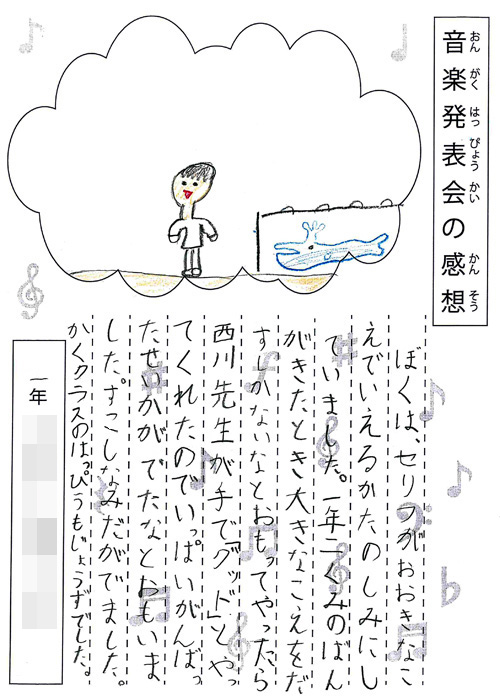 音楽発表会の感想
おんがくはっぴょうかいかんそう
ぼくは、セリフがおおきなこ
えでいえるかたのしみにし
ていました。一年二くみのばん
がきたとき大きなこえをだ
すしかないなとおもってやったら
西川先生が手で「グッド」とやっ
てくれたのでいっぱいがんばっ
たせいかがでたなとおもいま
した。すこしなみだがでました。
かくクラスのはっぴょうもじょうずでした。
一年